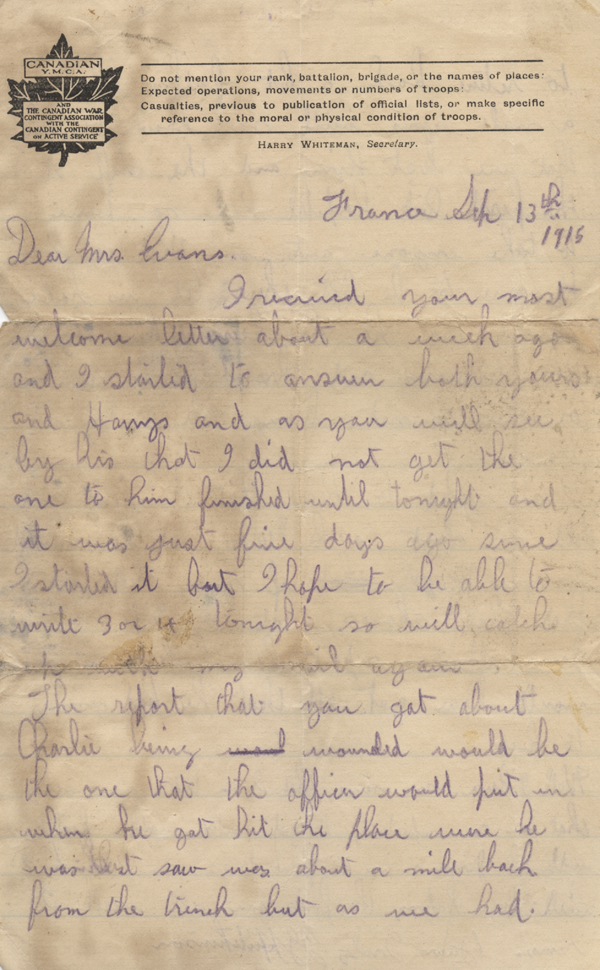 CANADIAN
Y.M.C.A.
AND
THE CANADIAN WAR
CONTINGENT ASSOCIATION
WITH THE
CANADIAN CONTINGENT
ON ACTIVE SERVICE
Do not mention your rank, battalion, brigade, or the names of places:
Expected operations, movements or numbers of troops:
Casualties, previous to publication of official lists, or make specific
reference to the moral or physical condition of troops.
HARRY WHITEMAN, Secretary.
France Sep 13th
1915
Dear Mrs. Evans.
I recieved your most
welcome letter about a week ago
and I started to answer both yours
and Harrys and as you will see
by his that I did not get the
one to him finished until tonight and
it was just five days ago since
I started it but I hope to be able to
write 3 or 4 tonight so will catch
up with my mail again.
The report that you got about
Charlie being wounded would be
the one that the officer would put in
when he got hit the place were he
was last saw was about a mile back
from the trench but as we had.